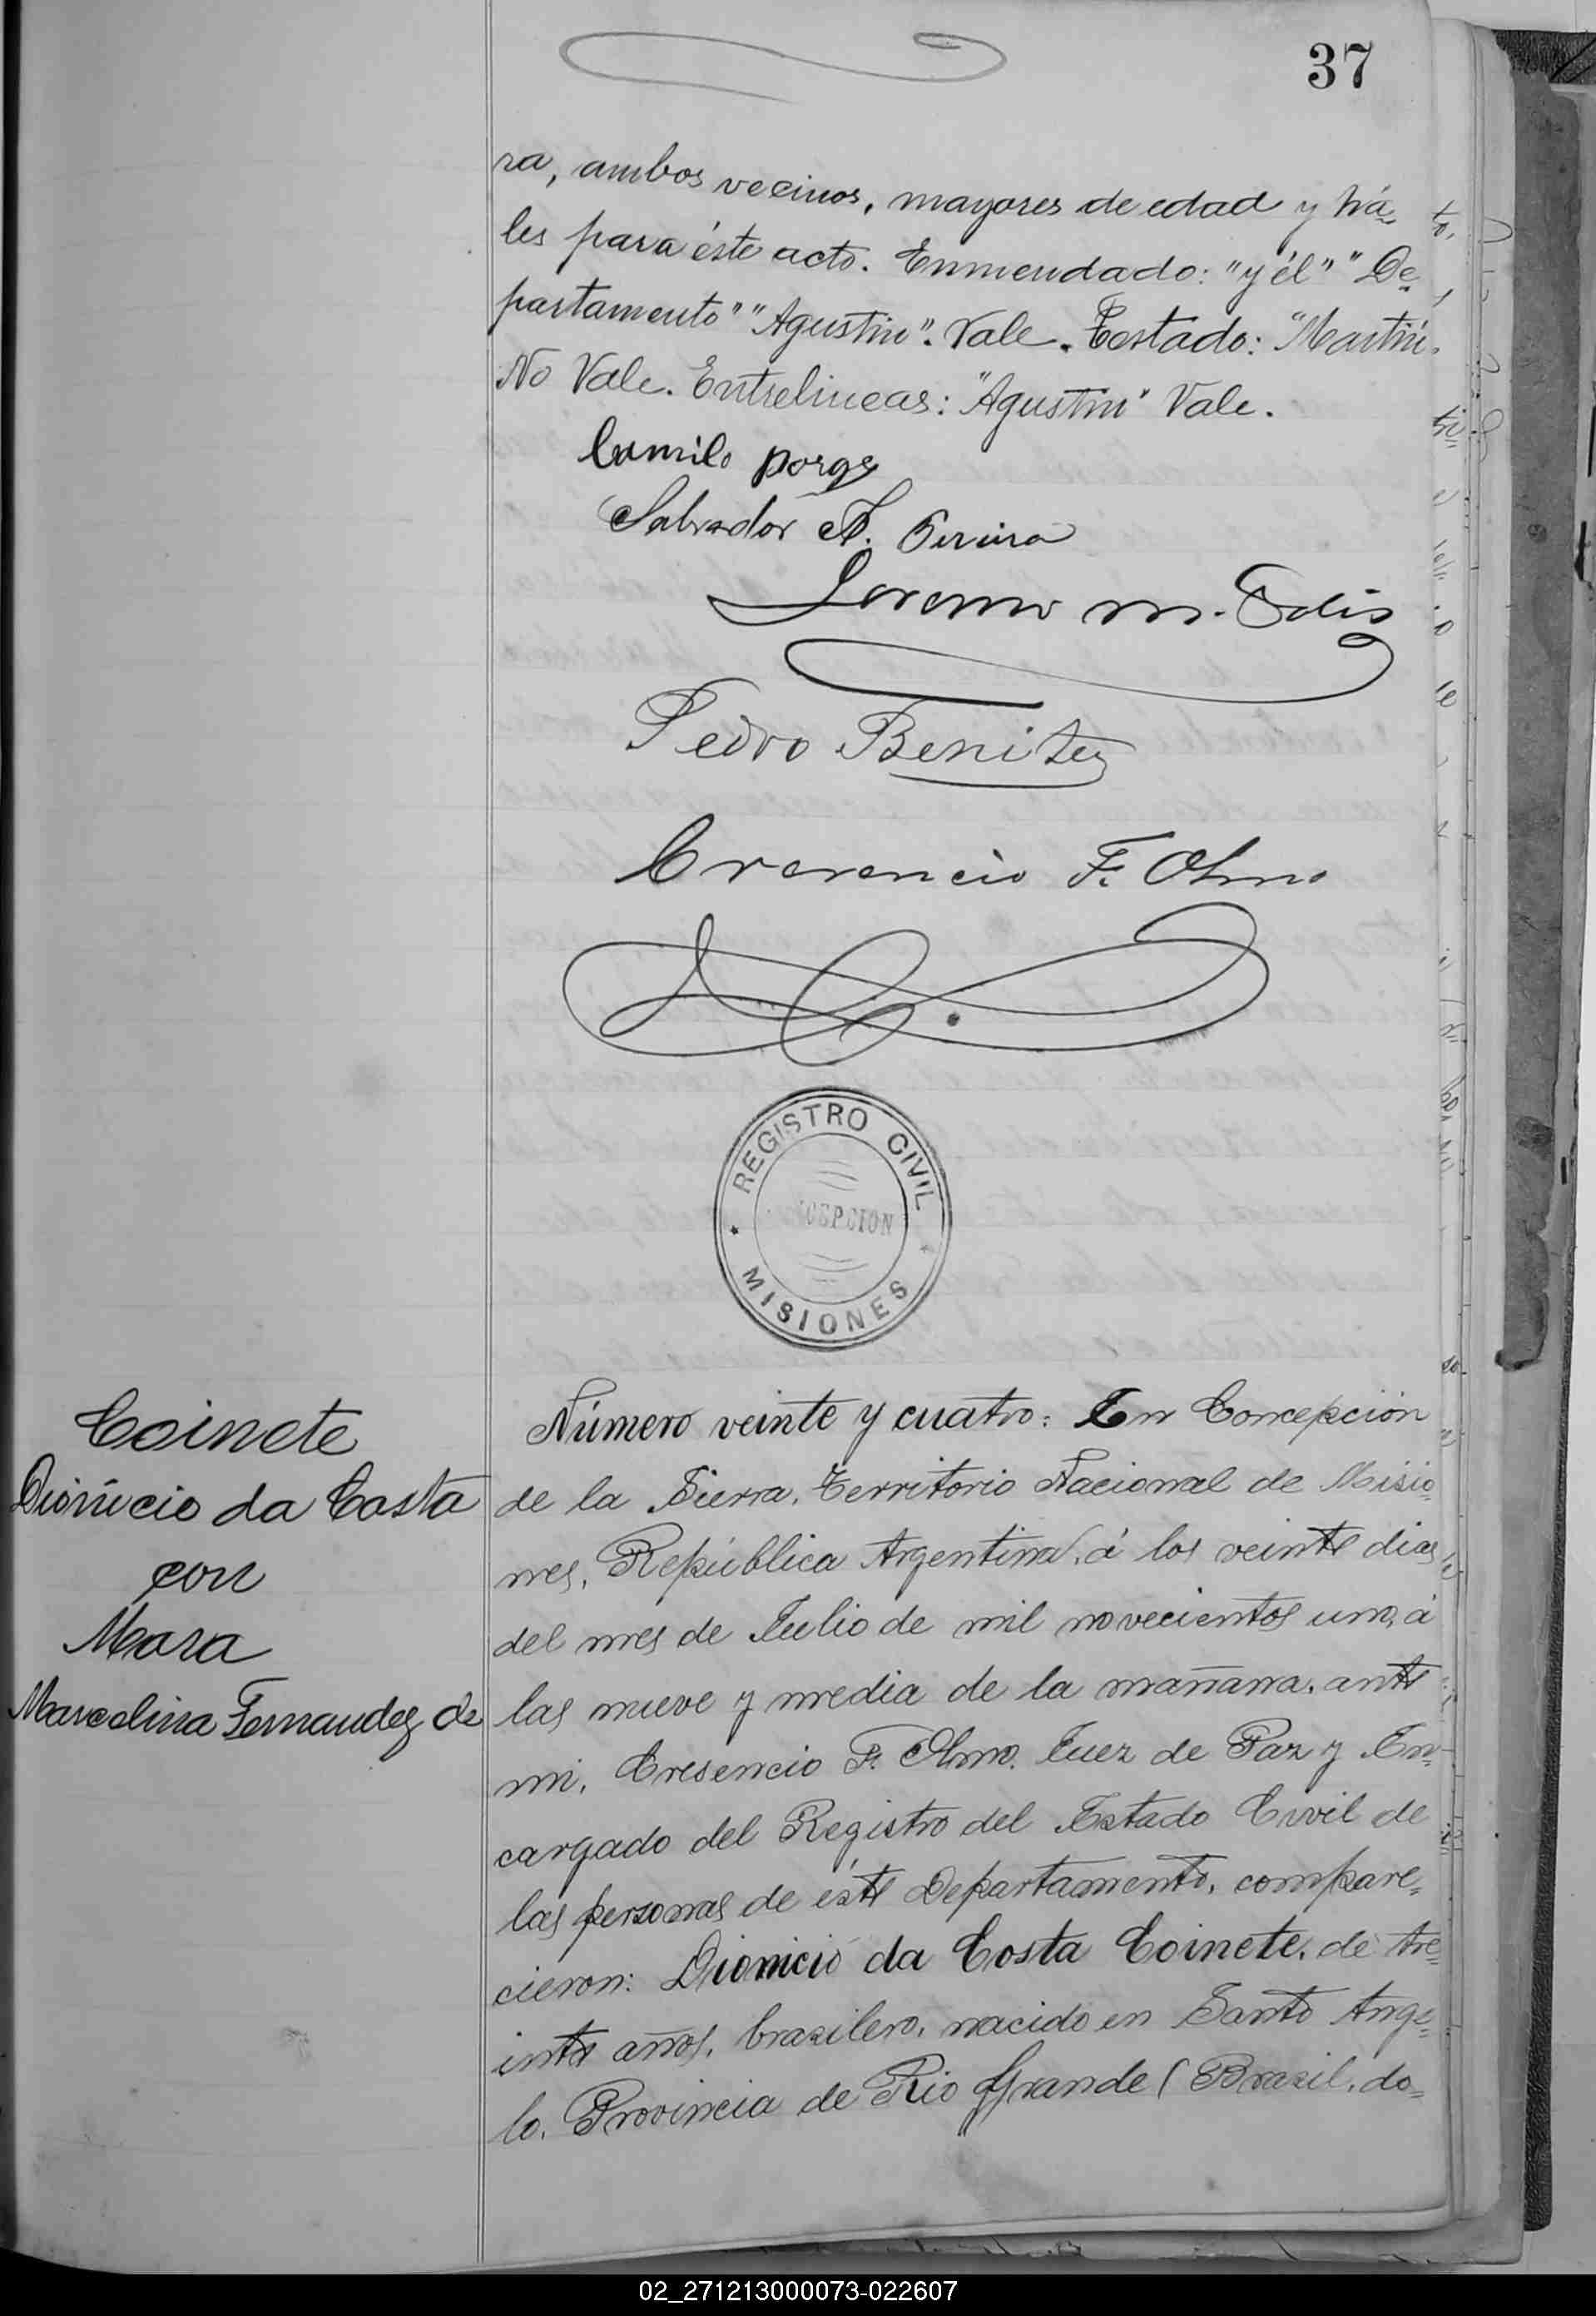 37
ra, ambos vecinos, mayores de edad y há-
les para éste acto. Enmendado: "y él" "De-
partamento" "Agustin". Vale. Testado: "Martin.
No Vale. Entrelineas: "Agustin" Vale.
Camilo
Salvador A.
Lorenzo M. Solis
Pedro Benitez
Cresencio F. Olmo
REGISTRO CIVIL
CEPCION
MISIONES
Coinete
Dionicio da Costa
con
Mara
Marcelina Fernandez de
Número veinte y cuatro: En Concepción
de la Sierra, Territorio Nacional de Misio-
nes, República Argentina, á los veinte dias
del mes de Julio de mil novecientos uno, á
las nueve y media de la mañana, ante
mi, Cresencio F. Olmo, Juez de Paz y En-
cargado del Registro del Estado Civil de
las personas de éste Departamento, compare-
cieron: Dionicio da Costa Coinete, de tre-
inta años, brasilero, nacido en Santo Ange-
lo, Provincia de Rio Grande (Brazil, do-
02_271213000073-022607